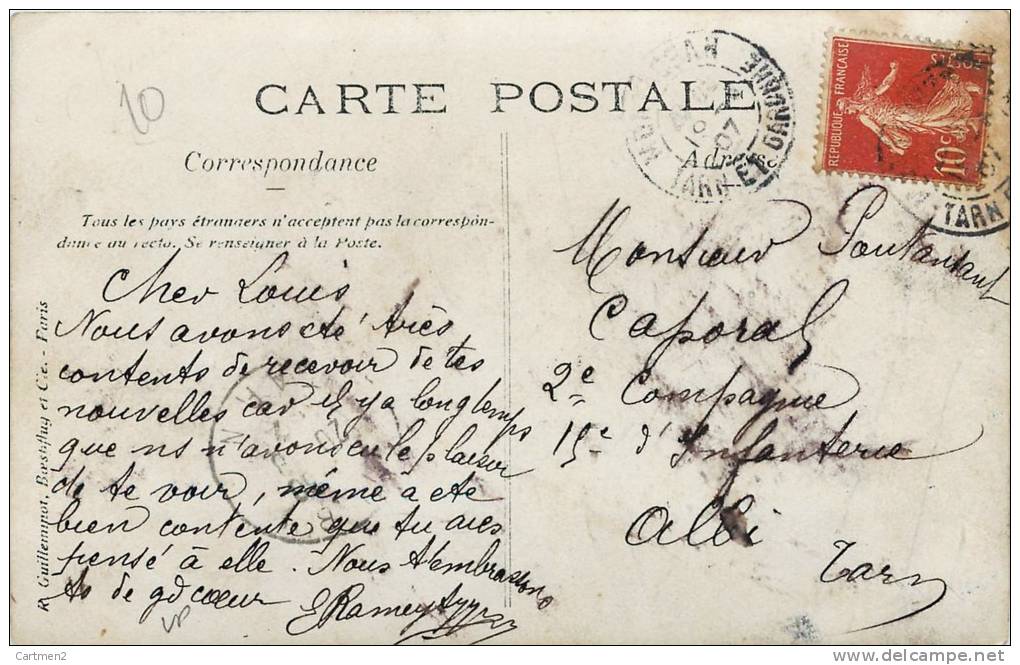 10
CARTE POSTALE
Correspondance
Adresse
Tous les pays étrangers n'acceptent pas la correspon-
dance au recto. Se renseigner à la Poste.
RÉPUBLIQUE FRANÇAISE
POSTES
10c
TARN ET GARONNE
07
TARN
Cher Louis
Nous avons été très
contents de recevoir de tes
nouvelles car il y a longtemps
que ns n'avons eu le plaisir
de te voir, même a été
bien contente que tu aies
pensé à elle. Nous t'embrassons
ts de gd cœur
Monsieur Poutantant
Caporal
2e Compagnie
15e d'Infanterie
Albi
Tarn
R. Guilleminot, Bœspflug et Cie. - Paris
Cartmen2
www.delcampe.net